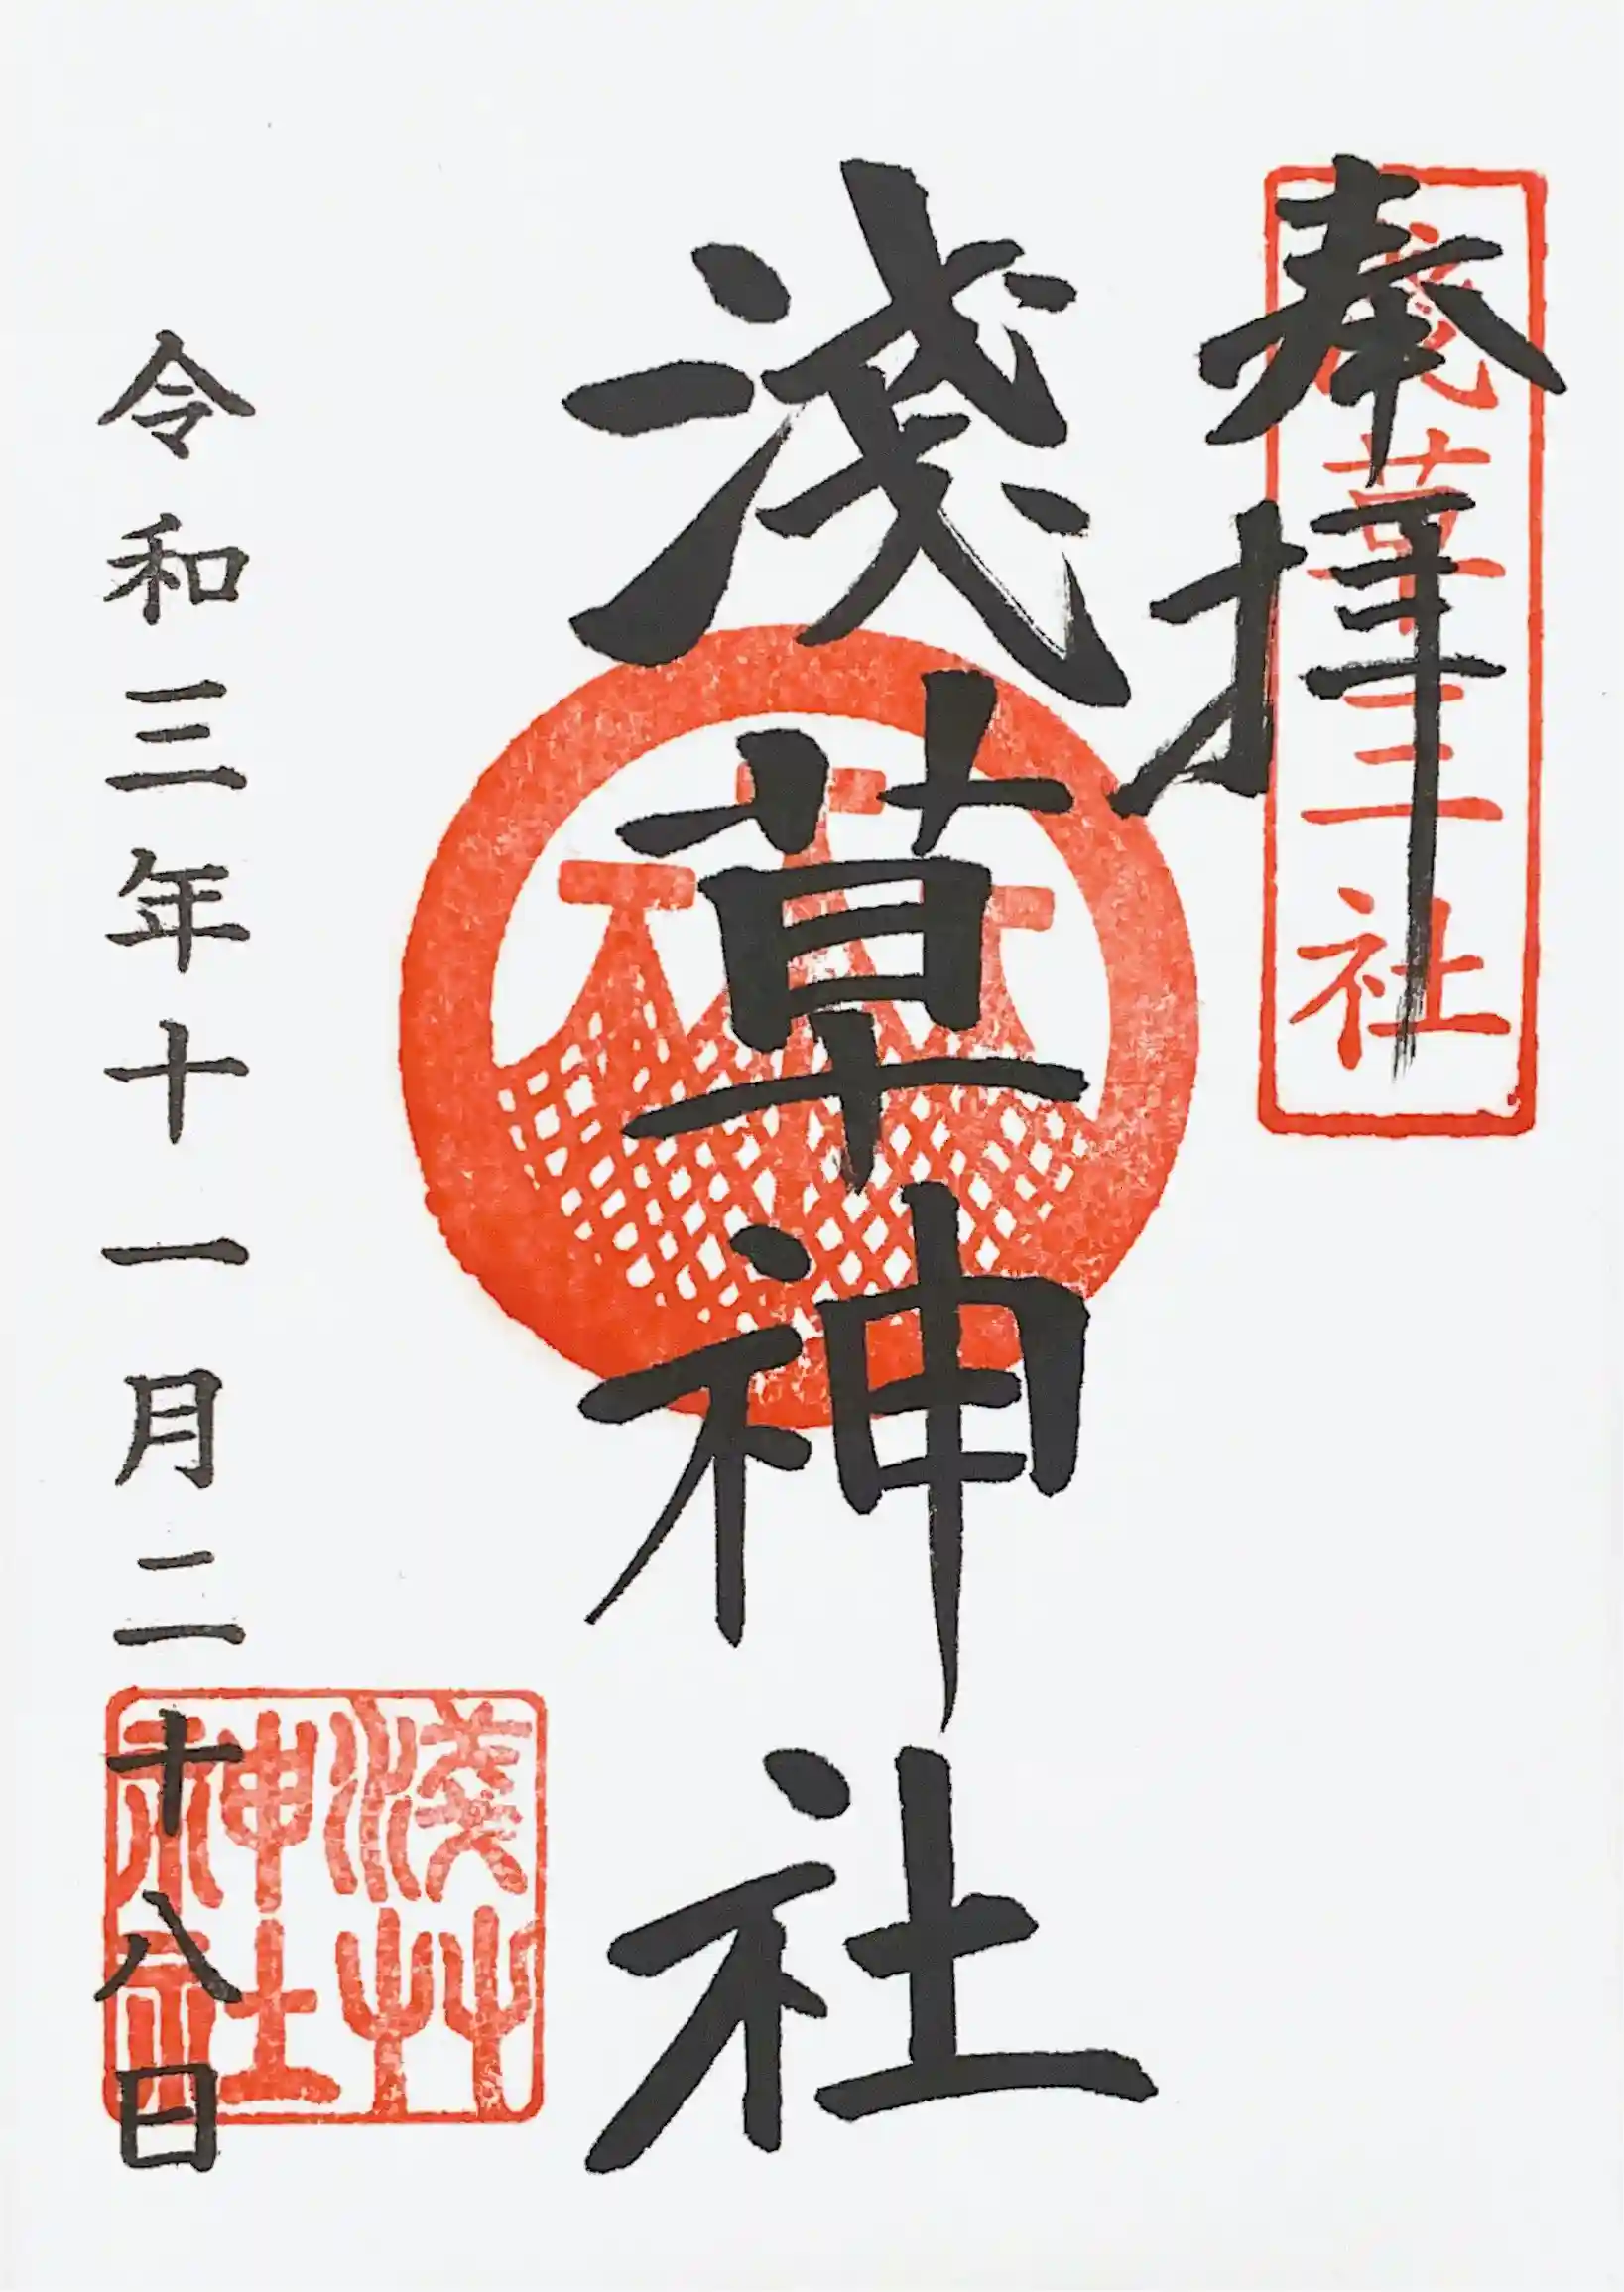 奉拝
淺草三社
淺草神社
令和三年十一月二十八日
淺艸神社